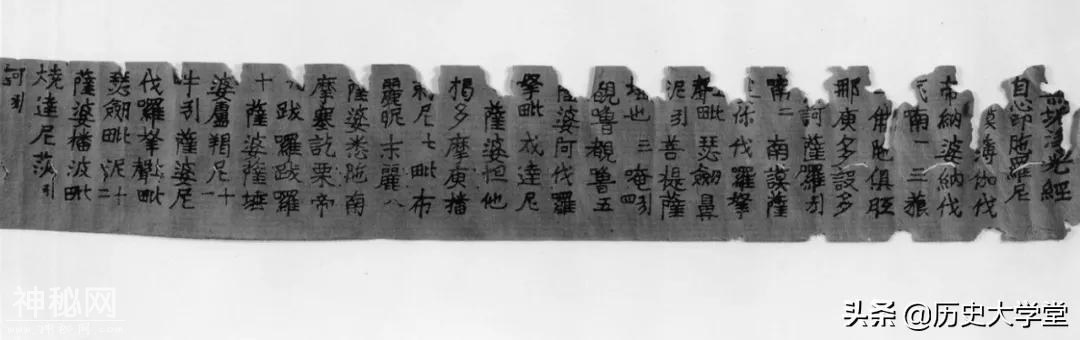 無垢淨光經
自心印陁羅尼
謨薄伽伐
帝納婆納伐
喃一三藐
佛陁俱胝
那庾多設多
訶薩羅引
喃二南謨薩
你伐羅拏
毗瑟劒鼻
泥引菩提薩
埵也三唵引四
覩嚕覩嚕五
薩婆阿伐羅
拏毗戍達尼
薩婆怛他
揭多摩庾播
尼七毗布
麗昵末麗八
薩婆悉陁南
摩塞訖栗帝
跋羅跋羅
十薩婆薩埵
婆盧羯尼十一
牛引薩婆尼
伐羅拏毗
瑟劒毗泥十二
薩婆播波毗
燒達尼莎引
訶引
神秘网
头条 @历史大学堂